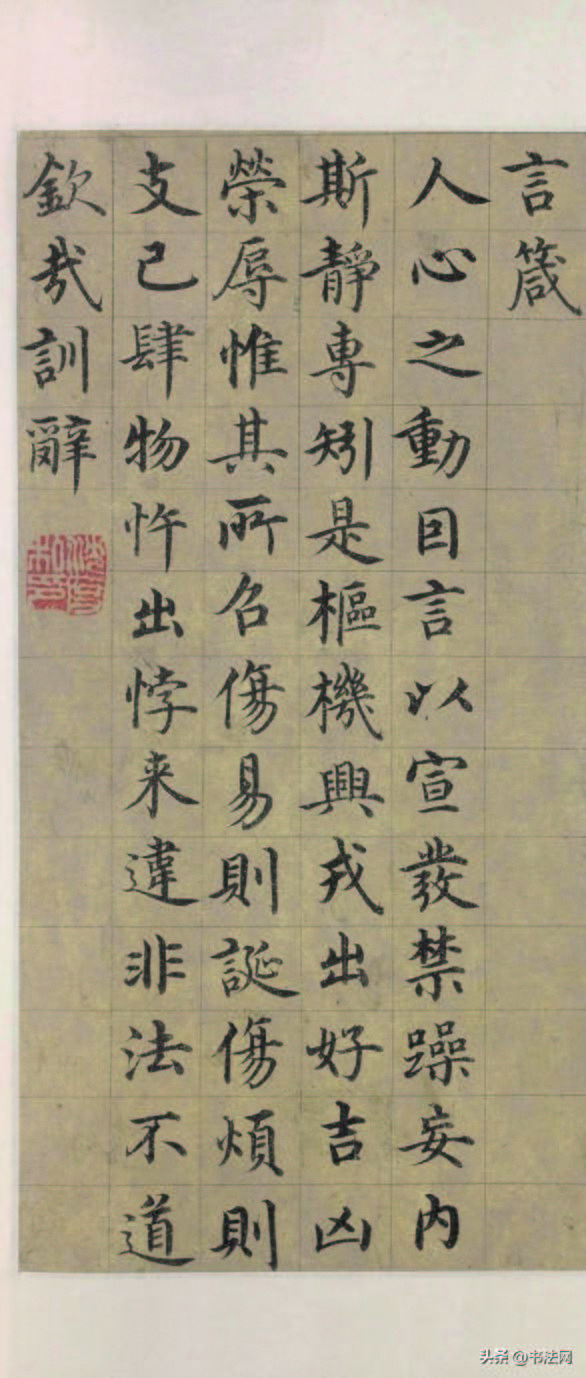 言箴
人心之動囙言以宣發禁躁妄内
斯靜專矧是樞機興戎出好吉凶
榮辱惟其所召傷易則誕傷煩則
支己肆物忤出悖来違非法不道
欽哉訓辭
头条 @书法网